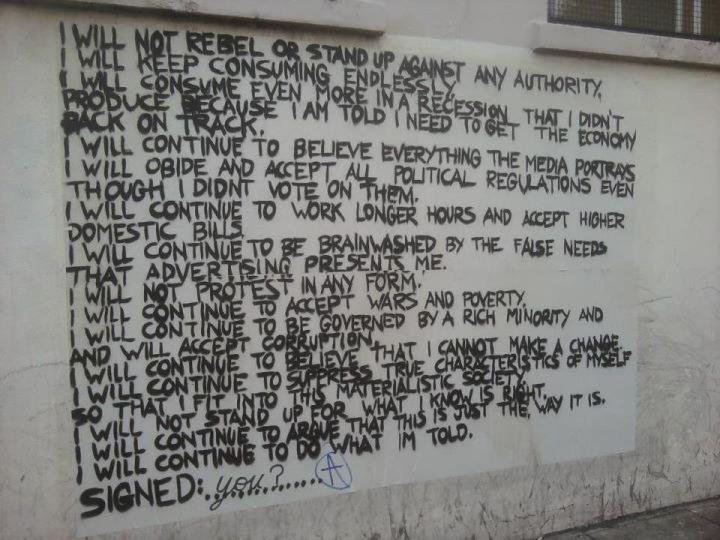 I WILL NOT REBEL OR STAND UP AGAINST ANY AUTHORITY.
I WILL KEEP CONSUMING ENDLESSLY.
I WILL CONSUME EVEN MORE IN A RECESSION THAT I DIDN'T
PRODUCE BECAUSE I AM TOLD I NEED TO GET THE ECONOMY
BACK ON TRACK.
I WILL CONTINUE TO BELIEVE EVERYTHING THE MEDIA PORTRAYS
I WILL OBIDE AND ACCEPT ALL POLITICAL REGULATIONS EVEN
THOUGH I DIDNT VOTE ON THEM.
I WILL CONTINUE TO WORK LONGER HOURS AND ACCEPT HIGHER
DOMESTIC BILLS.
I WILL CONTINUE TO BE BRAINWASHED BY THE FALSE NEEDS
THAT ADVERTISING PRESENTS ME.
I WILL NOT PROTEST IN ANY FORM.
I WILL CONTINUE TO ACCEPT WARS AND POVERTY.
I WILL CONTINUE TO BE GOVERNED BY A RICH MINORITY AND
AND WILL ACCEPT CORRUPTION.
I WILL CONTINUE TO BELIEVE THAT I CANNOT MAKE A CHANGE.
I WILL CONTINUE TO SUPPRESS TRUE CHARACTERISTICS OF MYSELF
SO THAT I FIT INTO THIS MATERIALISTIC SOCIETY.
I WILL NOT STAND UP FOR WHAT I KNOW IS RIGHT.
I WILL CONTINUE TO ARGUE THAT THIS IS JUST THE WAY IT IS.
I WILL CONTINUE TO DO WHAT IM TOLD.
SIGNED: you?.......... A